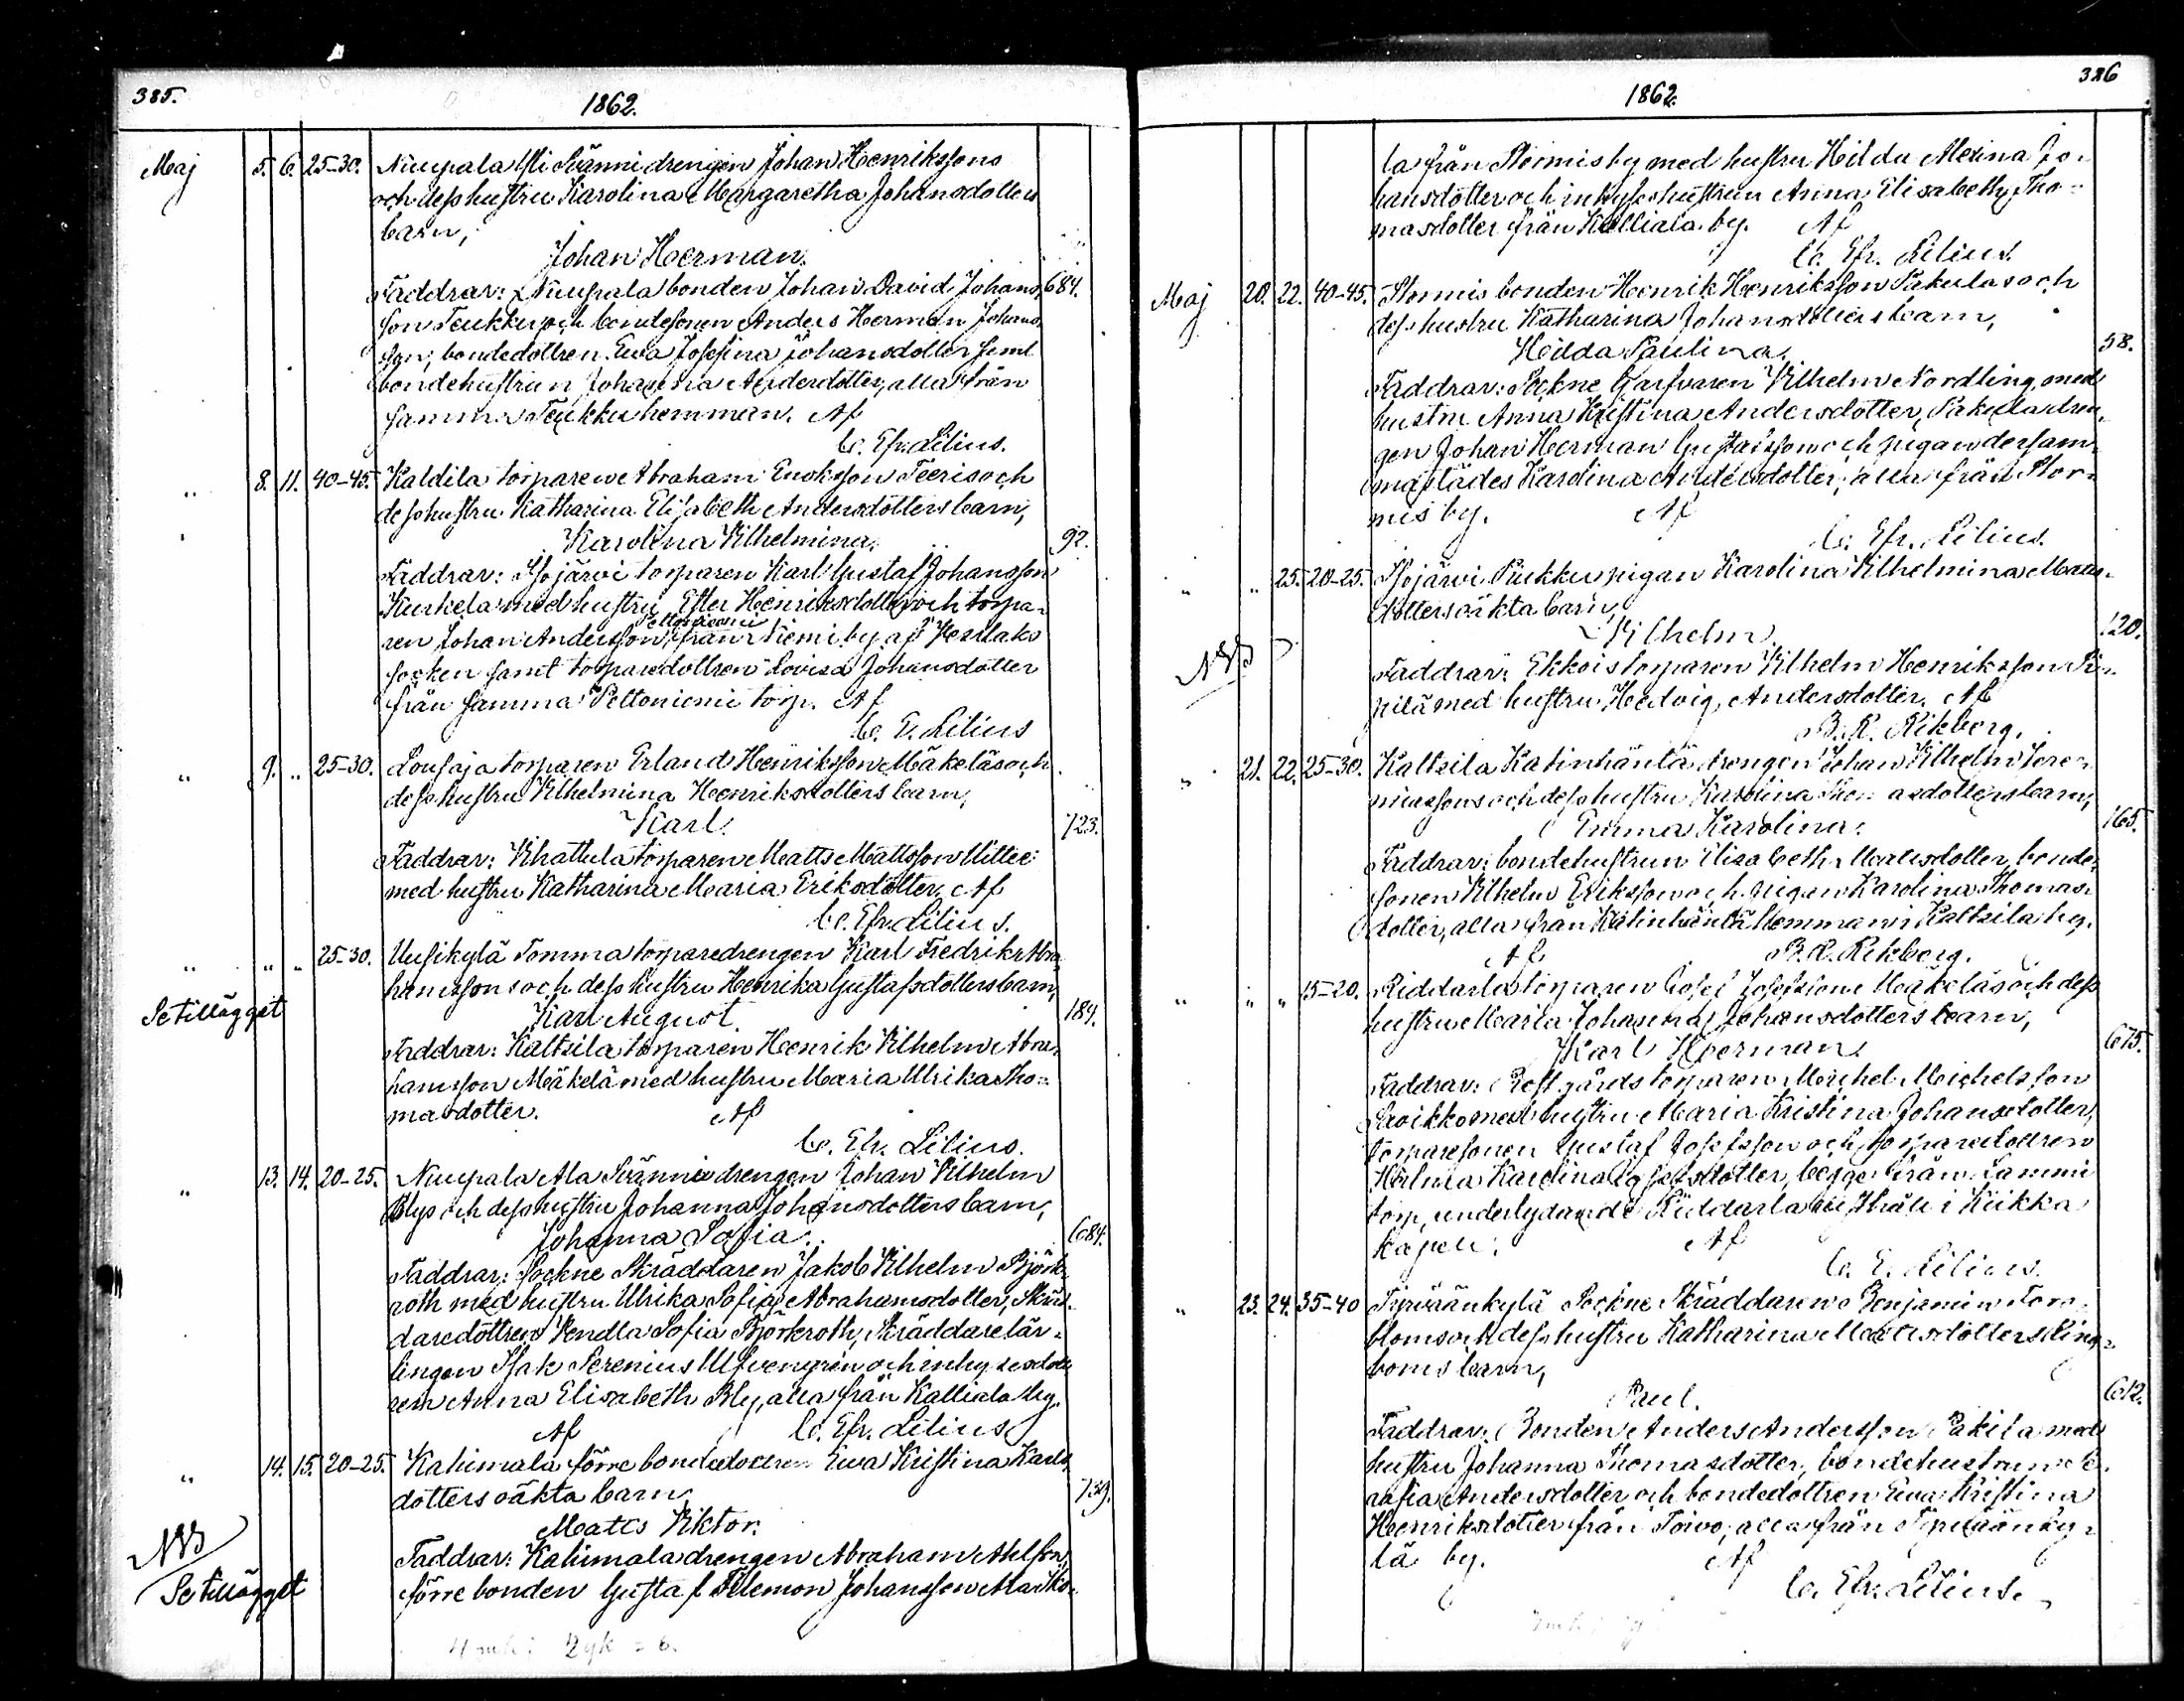 385.
1862.
Maj 5. 6. 25-30. Nuupala Yli Svänni drengen Johan Henrikssons
och dess hustru Karolina Margaretha Johansdotters
barn,
Johan Herman.
Faddrar: Nuupala bonden Johan David Johans- 684.
son Teukku och bondesonen Anders Herman Johans-
son, bondedottren Ewa Josefina Johansdotter samt
bondehustrun Johanna Andersdotter, alla från
samma Teukku hemman. Af
C. Efr. Lilius.
" 8. 11. 40-45. Kaldila torparen Abraham Enoksson Teeris och
dess hustru Katharina Elisabeth Andersdotters barn,
Karolina Vilhelmina. 92.
Faddrar: Isojärvi torparen Karl Gustaf Johansson
Kurkela med hustru Ester Henriksdotter och torpa-
ren Johan Andersson Peltoniemi från Niemi by af
socken samt torparedottren Lovisa Johansdotter
från samma Peltoniemi torp. Af
C. E. Lilius
" 9. " 25-30. Lousaja torparen Erland Henriksson Mäkeläs och
dess hustru Vilhelmina Henriksdotters barn,
Karl. 723.
Faddrar: Vihattula torparen Matts Mattsson
med hustru Katharina Maria Eriksdotter. Af
C. Efr. Lilius.
" " " 25-30. Uusikylä Tomma torparedrengen Karl Fredrik Abra-
hamssons och dess hustru Henrika Gustafsdotters barn,
Se tillägget Karl August. 184.
Faddrar: Kaltsila torparen Henrik Vilhelm Abra-
hamsson Mäkelä med hustru Maria Ulrika Tho-
masdotter. Af
C. Efr. Lilius.
" 13. 14. 20-25. Nuupala Ala Svänni drengen Johan Vilhelm
Blys och dess hustru Johanna Johansdotters barn,
Johanna Sofia. 684.
Faddrar: Sockne Skräddaren Jakob Vilhelm Björk-
roth med hustru Ulrika Sofia Abrahamsdotter, Skräd-
daredottren Vendla Sofia Björkroth, Skräddarelär-
lingen Isak Serenius Ulfvengren och inhysesdott-
ren Anna Elisabeth Bly, alla från Kalliala by.
Af C. Efr. Lilius
" 14. 15. 20-25. Kahimala förre bondedottren Ewa Kristina Karls-
dotters oäkta barn, 739.
Matts Viktor.
NB Faddrar: Kahimala drengen Abraham Ahlfors,
Se tillägget förre bonden Gustaf Filemon Johansson
4 mk: 2 qk = 6.
386
1862.
la från Stormis by med hustru Hilda Maxina Jo-
hansdotter och inhyseshustrun Anna Elisabeth Tho-
masdotter från Kalliala by. Af
C. Efr. Lilius.
Maj 20. 22. 40-45. Stormis bonden Henrik Henriksson Pakulas och
dess hustru Katharina Johansdotters barn,
Hilda Paulina. 58.
Faddrar: Sockne Garfvaren Vilhelm Nordling med
hustru Anna Kristina Andersdotter, Pakula dren-
gen Johan Herman Gustafsson och pigan dersam-
mastädes Karolina Andersdotter, alla från Stor-
mis by. Af
C. Efr. Lilius.
" " 25. 20-25. Isojärvi Pukku pigan Karolina Vilhelmina Matts-
dotters oäkta barn,
Vilhelm. 120.
NB Faddrar: Ekkois torparen Vilhelm Henriksson
med hustru Hedvig Andersdotter. Af
B. R. Rikberg.
" 21. 22. 25-30. Kaltsila Katinhäntä drengen Johan Vilhelm Jere-
miassons och dess hustru Karolina Thomasdotters barn,
Emma Karolina. 165.
Faddrar: bondehustrun Elisabeth Mattsdotter, bonde-
sonen Vilhelm Eriksson och pigan Karolina Thomas-
dotter, alla från Katinhäntä hemman i Kaltsila by.
Af B. R. Rikberg.
" " " 15-20. Riddarla torparen Josef Josefsson Mäkeläs och dess
hustru Maria Johanna Johansdotters barn,
Karl Herman. 675.
Faddrar: Prestgårds torparen Michel Michelsson
Savikko med hustru Maria Kristina Johansdotter,
torparesonen Gustaf Josefsson och torparedottren
Hilma Karolina Josefsdotter, begge från Lammi
torp, underlydande Riddarla i Kiikka
kapell. Af
C. E. Lilius.
" 23. 24. 35-40 Tyrväänkylä Sockne Skräddaren Benjamin Fors-
bloms och dess hustru Katharina Mattsdotters Ling-
boms barn,
Paul. 612.
Faddrar: Bonden Anders Andersson Pakila med
hustru Johanna Thomasdotter, bondehustrun Se-
rafia Andersdotter och bondedottren Ewa Kristina
Henriksdotter från Toivo, alla från Tyrväänky-
lä by. Af
C. Efr. Lilius.